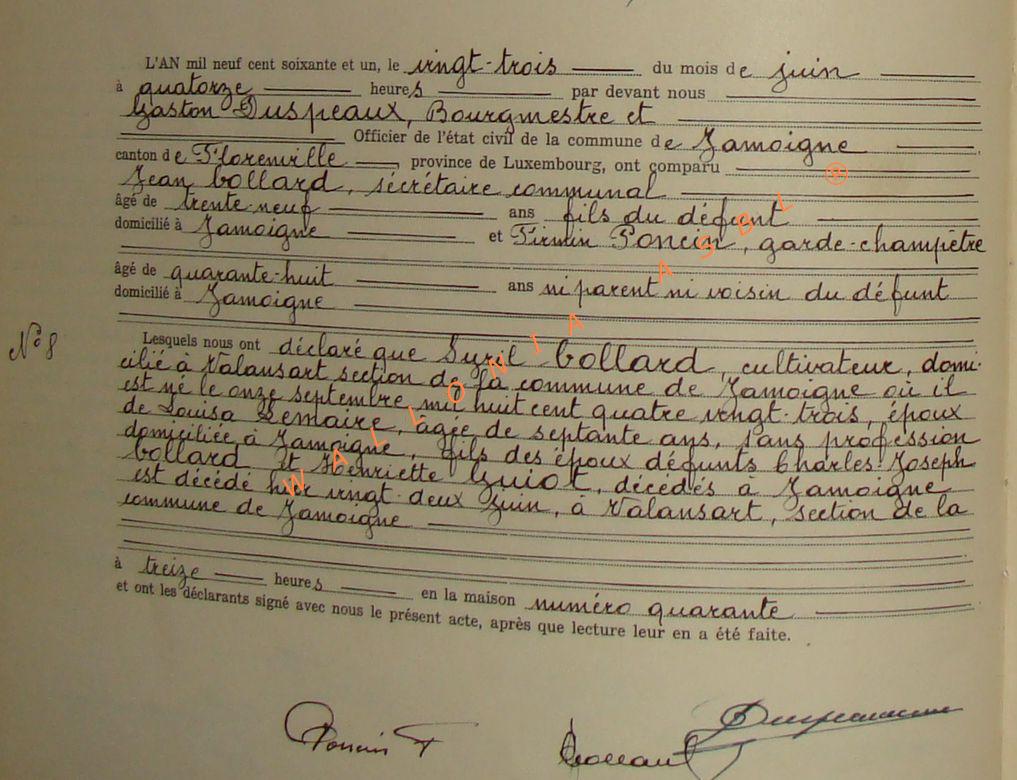 L'AN mil neuf cent soixante et un, le vingt-trois du mois de juin
à quatorze heures par devant nous
Gaston Duspeaux, Bourgmestre et
Officier de l'état civil de la commune de Jamoigne
canton de Florenville, province de Luxembourg, ont comparu
Jean Collard, sécrétaire communal
âgé de trente-neuf ans fils du défunt
domicilié à Jamoigne et Firmin Poncin, garde-champêtre
âgé de quarante-huit ans ni parent ni voisin du défunt
domicilié à Jamoigne
N° 8
Lesquels nous ont déclaré que Syril Collard, cultivateur, domi-
cilié à Valansart section de la commune de Jamoigne où il
est né le onze septembre mil huit cent quatre vingt-trois, époux
de Louisa Lemaire, âgée de septante ans, sans profession
domiciliée à Jamoigne, fils des époux défunts Charles-Joseph
Collard et Henriette Guiot, décédés à Jamoigne
est décédé hier vingt-deux juin, à Valansart, section de la
commune de Jamoigne
à treize heures en la maison numéro quarante
et ont les déclarants signé avec nous le présent acte, après que lecture leur en a été faite.
WALLONIA ASBL ®
Poncin F Collard